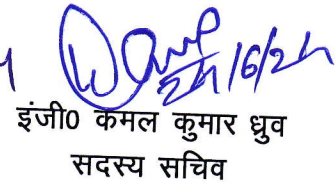 24/6/24
इंजी0 कमल कुमार ध्रुव
सदस्य सचिव